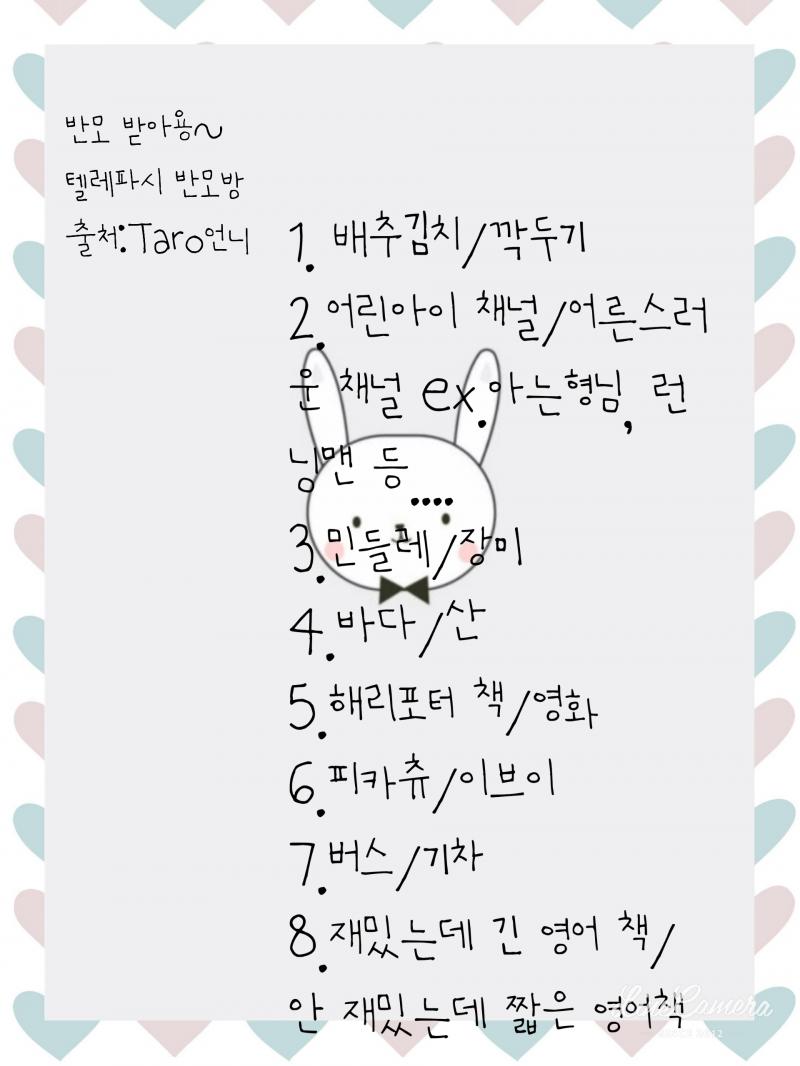 반모 받아용~
텔레파시 반모방
출처:Taro언니
1. 배추김치/깍두기
2.어린아이 채널/어른스러
운 채널 ex.아는형님, 런
닝맨 등....
3.민들레/장미
4.바다/산
5.해리포터 책/영화
6.피카츄/이브이
7.버스/기차
8.재밌는데 긴 영어 책/
안 재밌는데 짧은 영어책